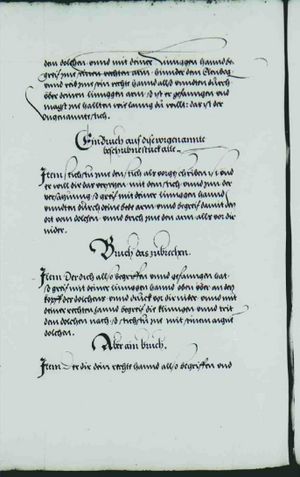 dem dolchen vnnd mit deiner linnggen hannd be
greif Im seinen rechten arm hinnder dem Elenbog
vnnd reib Im sein recht hannd also vnndten durch
vber deinen linnggen arm so ist er gefanngen vnd
magst In hallten wie lanng du willt das ist der
vngenannt stich
Ein bruch auf dise vorgenannte
beschribne stuck alle
Item stichstu Im den stich als vorgeschriben ist vnd
er will dir das versetzen mit dem stich vnnd Im der
versatzung so greif mit deiner linnggen hannd
vnndten durch deine bede arm vnnd begreif damit den
ort vom dolchen vnnd bruch Im den arm also vor dir
nider
Bruch das zubrechen
Item Der dich also begriffen vnnd gefanngen hat
so greif mit deiner linnggen hannd oben oder an den
kopff der dolchens vnnd druck vor dir nider vnnd mit
deiner rechten hannd begreif die klinngen vnnd reib
den dolchen nach so stichstu In mit seinem aigen
dolchen
Aber ain bruch
Item Der dir dein rechte hannd also begriffen vnd